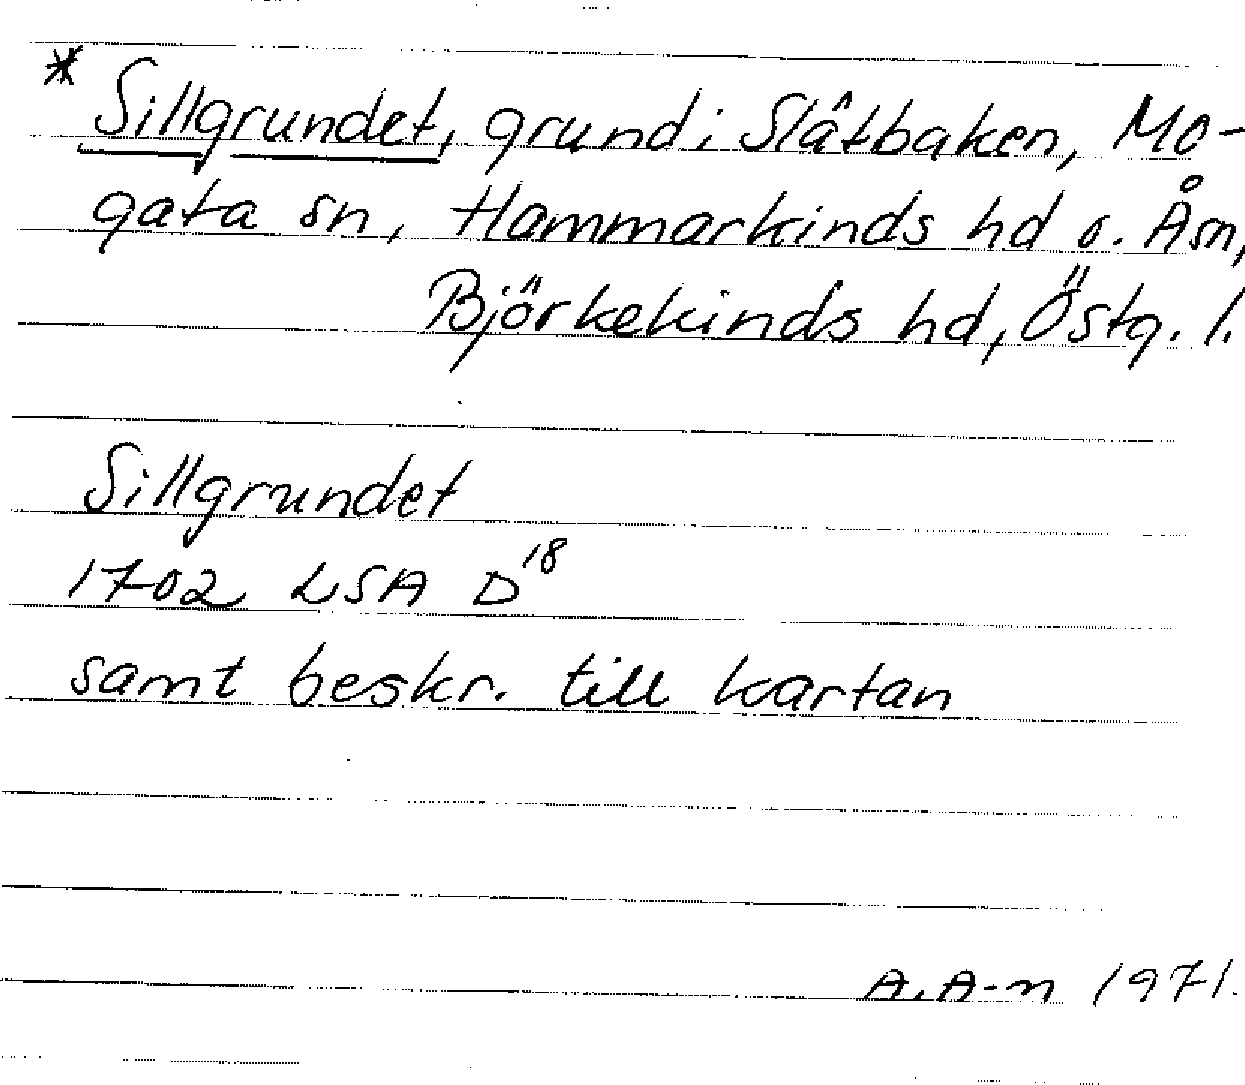 * Sillgrundet, grund i Slätbaken, Mo-
gata sn, Hammarkinds hd o. Å sn,
Björkekinds hd, Östg. l.
Sillgrundet
1702 LSA D 18
samt beskr. till kartan
A. A-n 1971.